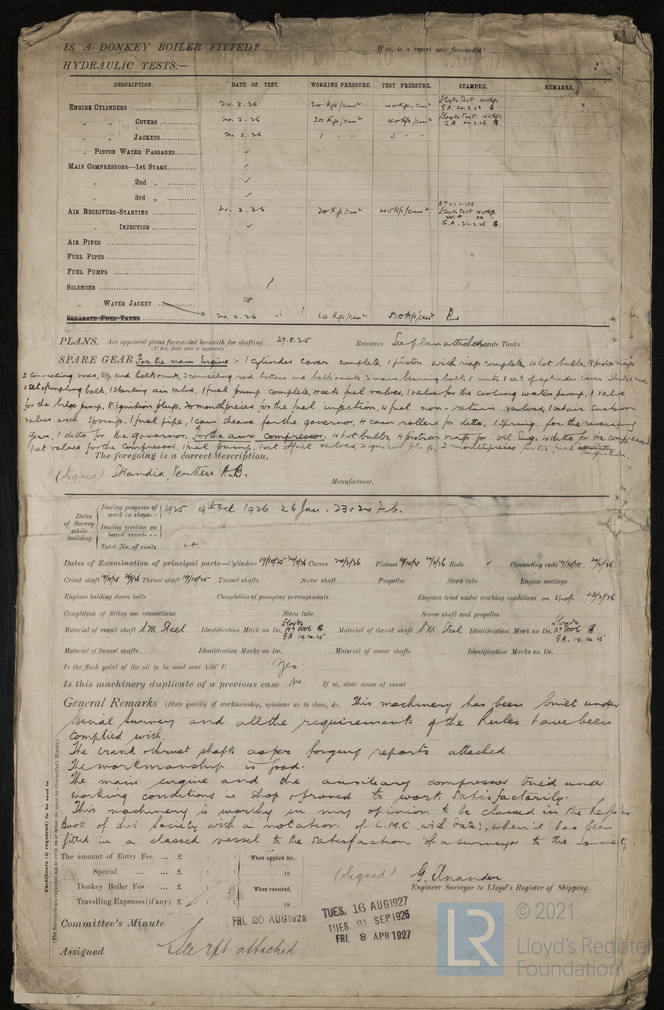 IS A DONKEY BOILER FITTED? If so, is a report now forwarded?
HYDRAULIC TESTS:—
DESCRIPTION. DATE OF TEST. WORKING PRESSURE. TEST PRESSURE. STAMPED. REMARKS.
ENGINE CYLINDERS 24.2.26 20 Kp/cm² 40 Kp/cm² Lloyds Test 40 Kp G.A. 24.2.26
" " COVERS 24.2.26 20 Kp/cm² 40 Kp/cm² Lloyds Test 40 Kp G.A. 24.2.26
" " JACKETS 24.2.26 1 " " 5 " "
" PISTON WATER PASSAGES ✓
MAIN COMPRESSORS—1st STAGE ✓
" 2nd " ✓
" 3rd " ✓
AIR RECEIVERS-STARTING 24.2.26 20 Kp/cm² 40 Kp/cm² Lloyds Test 40 Kp G.A. 24.2.26
" INJECTION ✓
AIR PIPES
FUEL PIPES
FUEL PUMPS
SILENCER
" WATER JACKET
SEPARATE FUEL TANKS 24.2.26 1.0 Kp/cm² 5.0 Kp/cm²
PLANS. Are approved plans forwarded herewith for shafting 27.8.25 Receivers See plan attached Separate Tanks
(If not, state date of approval)
SPARE GEAR For the main Engine :- 1 cylinder cover complete, 1 piston with rings complete, 4 hot bulbs, 18 piston rings
2 connecting rods, top end bolts & nuts, 2 connecting rod bottom end bolts & nuts 2 main bearing bolts & nuts 1 set of cylinder cover studs & nuts
1 set of coupling bolts, 1 starting air valve, 1 fuel pump complete, 4 sets fuel valves, 1 valve for the cooling water pump, 1 valve
for the bilge pump, 8 ignition plugs, 20 mouthpieces for the fuel injection, 4 fuel non-return valves, air suction
valves with springs. 1 fuel pipe, 1 cam sheave for the governor, 4 cam rollers for ditto. 1 spring for the reversing
gear, 1 ditto for the governor. For the aux. Compressor. 4 hot bulbs, 4 piston rings for oil eng. 4 ditto for the compressor
1 set valves for the compressor, 1 fuel pump, 1 set of fuel valves, 2 ignition plugs, 2 mouthpieces for the fuel
The foregoing is a correct description,
(Signed) Skandia Verken A.B. Manufacturer.
Dates of Survey while building
During progress of work in shops - - 1925 19th Oct. 1926 26 Jan. 23 & 24 Feb.
During erection on board vessel - - -
Total No. of visits 4
Dates of Examination of principal parts—Cylinders 19/10/25 24/2/26 Covers 24/2/26 Pistons 19/10/25 24/2/26 Rods ✓ Connecting rods 19/10/25 24/2/26
Crank shaft 19/10/25 Thrust shaft 19/10/25 Tunnel shafts Screw shaft Propeller Stern tube Engine seatings
Engines holding down bolts Completion of pumping arrangements Engines tried under working conditions in shop 23/2/26
Completion of fitting sea connections Stern tube Screw shaft and propeller
Material of crank shaft S.M. Steel Identification Mark on Do. Lloyds No 7006 G.A. 19.10.25 Material of thrust shaft S.M. Steel Identification Mark on Do. Lloyds No 7006 G.A. 19.10.25
Material of tunnel shafts Identification Marks on Do. Material of screw shafts Identification Marks on Do.
Is the flash point of the oil to be used over 150° F. Yes
Is this machinery duplicate of a previous case No If so, state name of vessel
General Remarks (State quality of workmanship, opinions as to class, &c. This machinery has been built under
special survey and all the requirements of the Rules have been
complied with.
The crank & thrust shafts as per forging reports attached
The workmanship is good.
The main engine and the auxiliary compressor tried under
working conditions in shop & proved to work satisfactorily.
This machinery is worthy in my opinion to be classed in the Register
Book of this Society with a notation of L.M.C. with date, when it has been
fitted in a classed vessel to the satisfaction of a surveyor to the Society
Certificate (if required) to be sent to
(The Surveyors are requested not to write on or below the space for Committee's Minute.)
The amount of Entry Fee ... £ : : When applied for,
Special ... ... £ : : 19
Donkey Boiler Fee ... ... £ : : When received,
Travelling Expenses (if any) £ : : 19
(Signed) G. Anander
Engineer Surveyor to Lloyd's Register of Shipping.
Committee's Minute FRI. 20 AUG 1926 TUES. 16 AUG 1927
TUES. 21 SEP 1926
FRI. 8 APR 1927
Assigned See rpt attached
LR © 2021
Lloyd's Register
Foundation